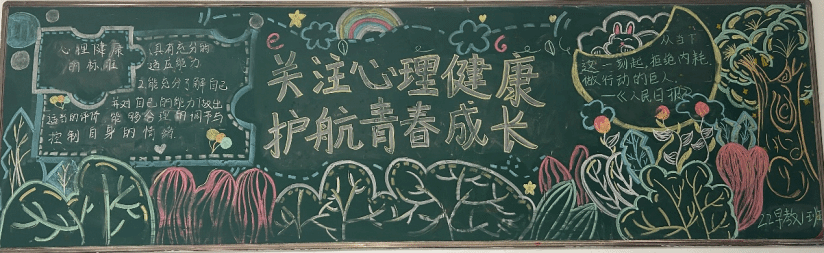 心理健康
的标准
1.具有充分的
适应能力
2.能充分了解自己
并对自己的能力做出
适当的评价 能够合理的调节与
控制自身的情绪
关注心理健康
护航青春成长
从当下
这一刻起,拒绝内耗,
做行动的巨人.
—《人民日报》
22早教1班